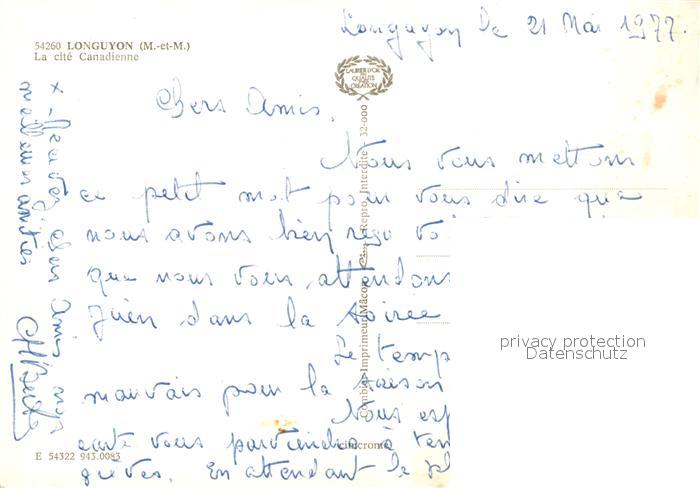 Longuyon le 21 Mai 1977.
54260 LONGUYON (M.-et-M.)
La cité Canadienne
LAURIER D'OR
DE
QUALITÉ
CRÉATION
Chers Amis.
Nous vous mettons
ce petit mot pour vous dire que
nous avons bien reçu vo
que nous vous attendons
Juin dans la soirée
Le temp
mauvais pour la saison
Nous esp
carte vous parviendra à tem
grèves. En attendant le pl
Combier Imprimeur Mâcon
Repro. Interdite
32-000
cinécrome
E 54322 943.0083
Recevez chers Amis nos
meilleures amitiés
privacy protection
Datenschutz